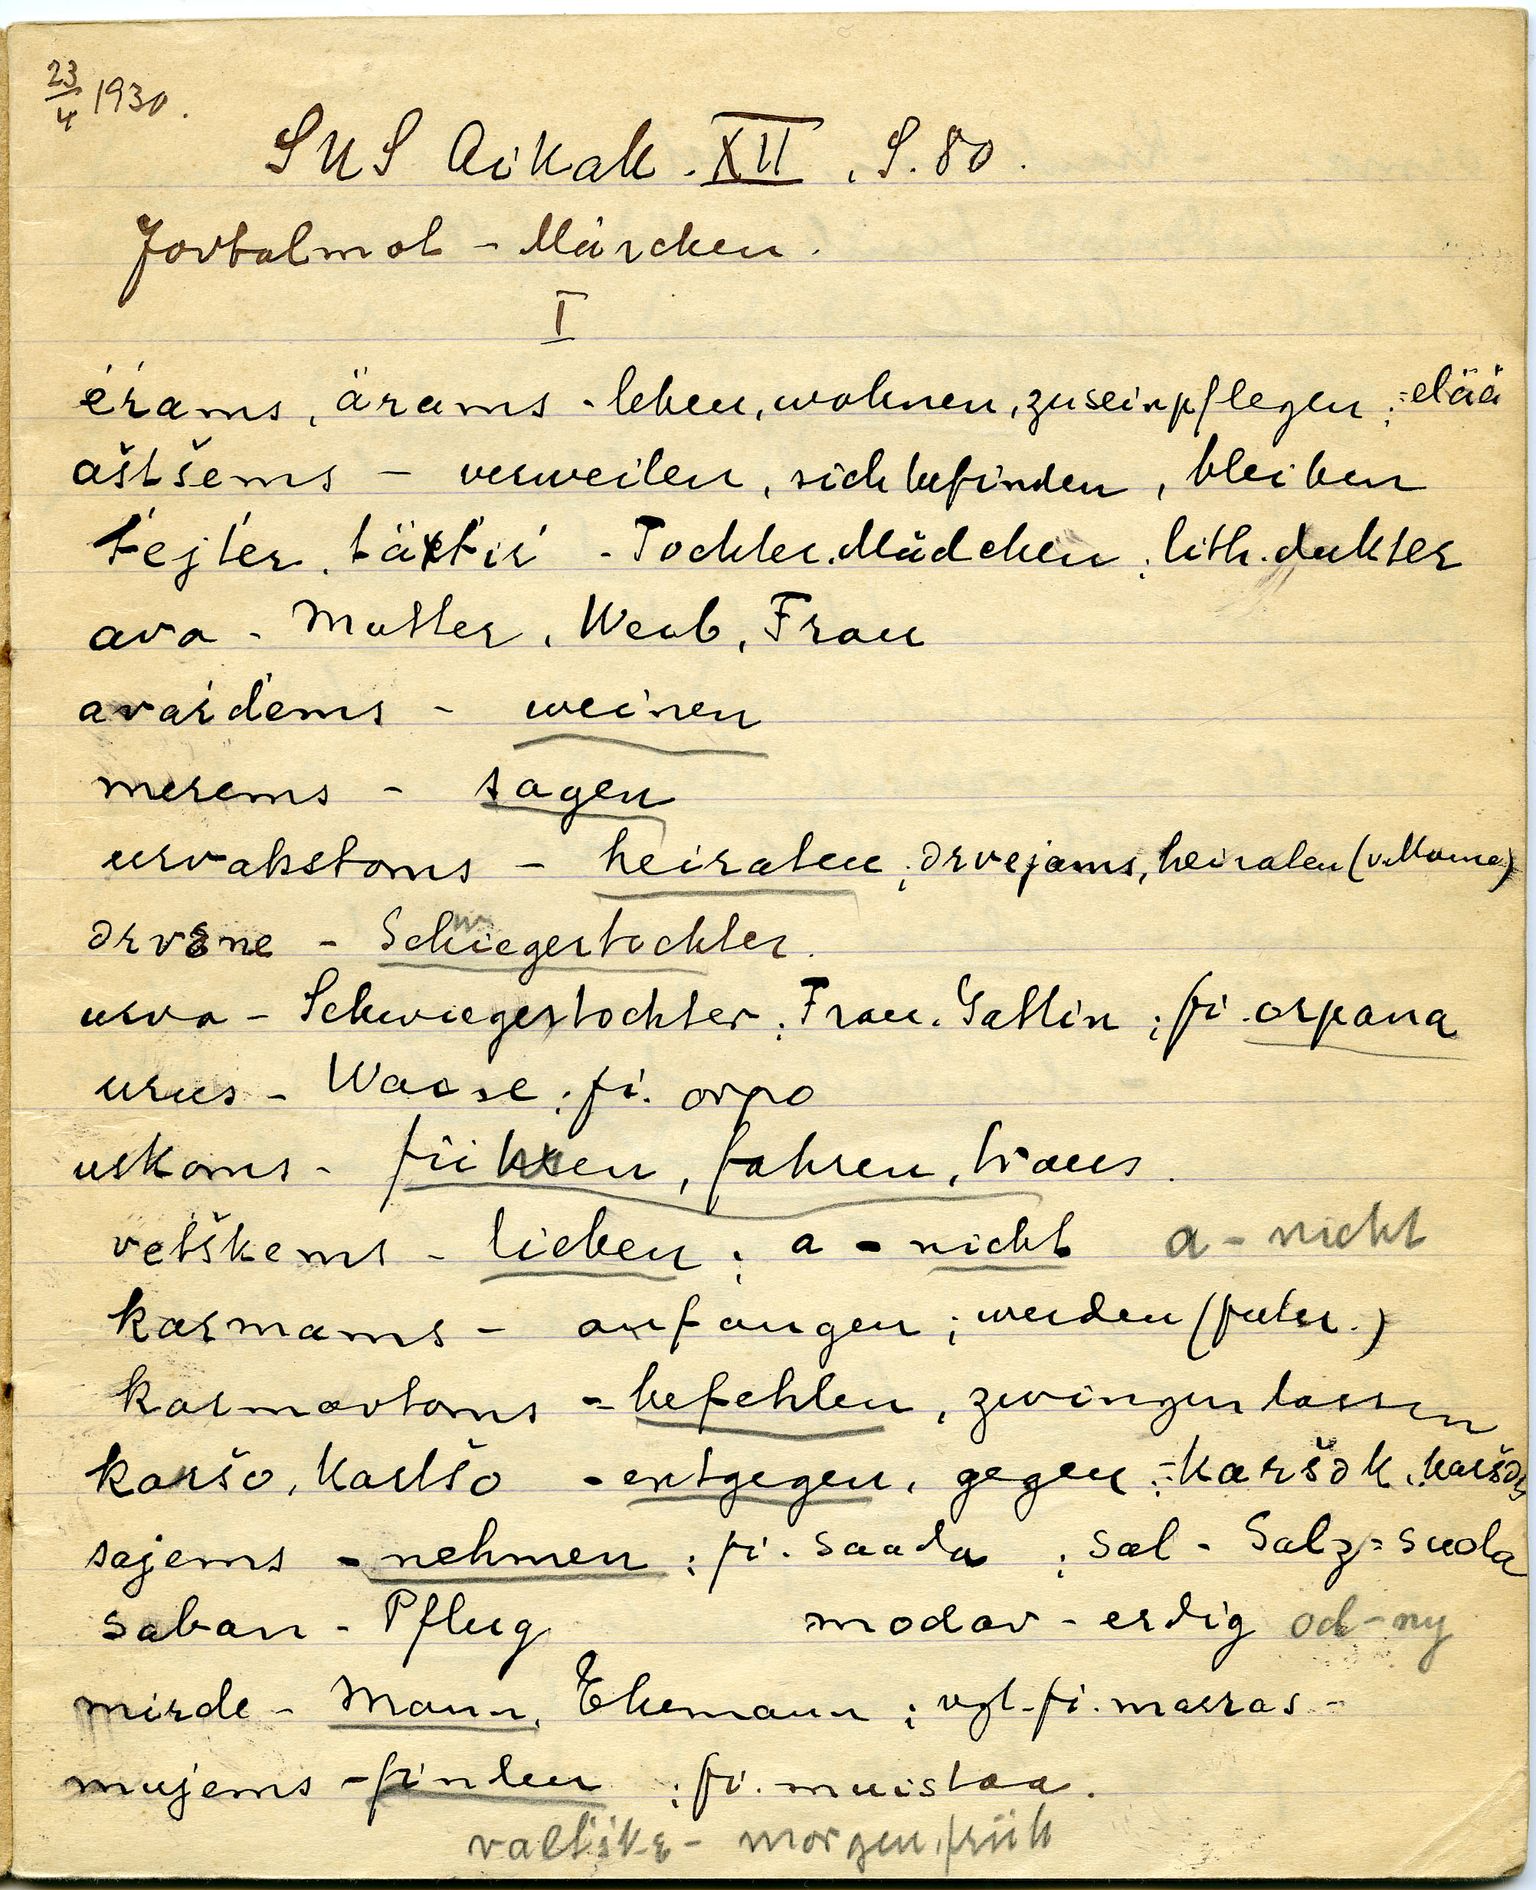 23/4 1930.
SUS Aikak. XII, S. 80.
Jovtalmat - Märchen.
I
éŕams, äŕams - leben, wohnen, zu sein pflegen; = elää
aštšems - verweilen, sich befinden, bleiben
t́ejt́eŕ, t́äxt́iŕ - Tochter, Mädchen; lith. dukter
ava - Mutter, Weib, Frau
avaŕd́ems - weinen
merems - sagen
urvakstoms - heiraten; ərvejams, heiraten (v. Manne)
ərvəne - Schwiegertochter.
urva - Schwiegertochter; Frau, Gattin; fi. orpana
urus - Waise; fi. orpo
uskoms - führen, fahren, traus.
vetškems - lieben; a - nicht a - nicht
karmams - anfangen; werden (futur.)
karmavtoms - befehlen, zwingen lassen
karšo, kartšo - entgegen, gegen; = karšək, karšəs
sajems - nehmen; fi. saada; sal - Salz = suola
saban - Pflug modav - erdig od - ny
mirde - Mann, Ehemann; vgl. fi. marras -
mujems - finden; fi. muistaa.
valt́ske - morgen, früh